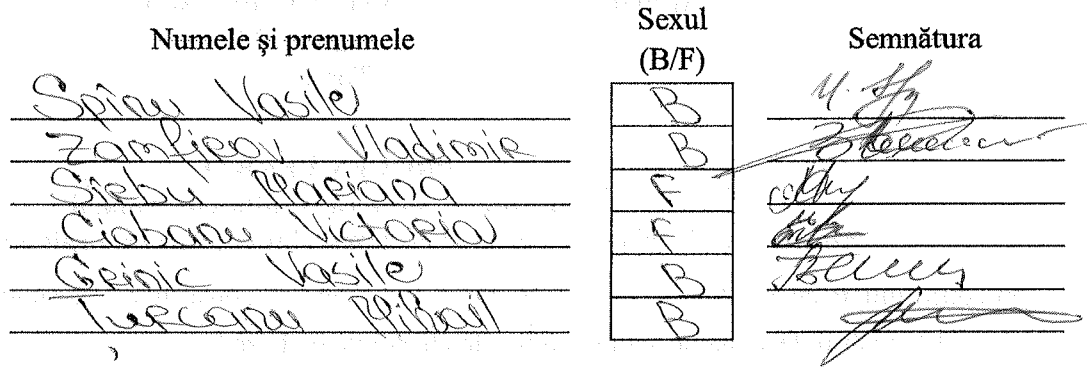 Numele și prenumele Sexul (B/F) Semnătura
Spînu Vasile B
Zamfirov Vladimir B
Sîrbu Mariana F
Ciobanu Victoria F
Grinic Vasile B
Țurcanu Mihail B